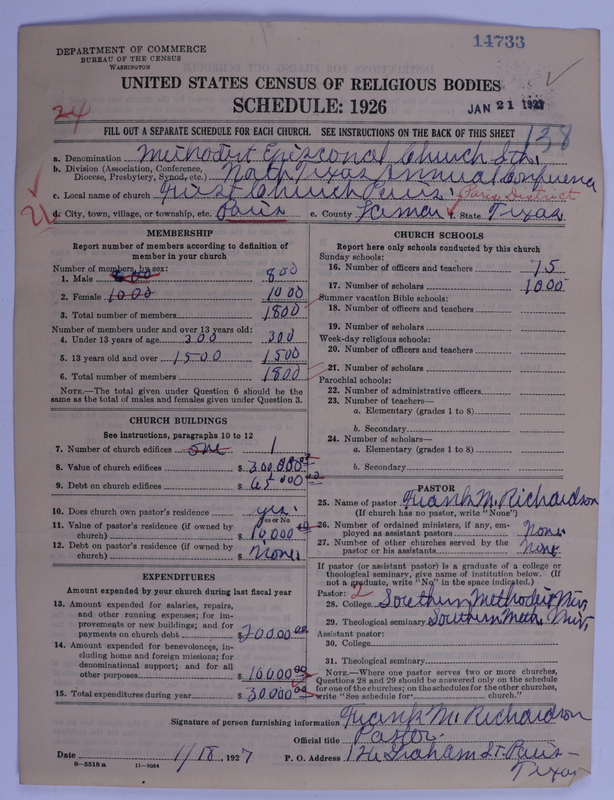 14733
DEPARTMENT OF COMMERCE
BUREAU OF THE CENSUS
WASHINGTON
UNITED STATES CENSUS OF RELIGIOUS BODIES
SCHEDULE: 1926
JAN 21 1927
24
FILL OUT A SEPARATE SCHEDULE FOR EACH CHURCH. SEE INSTRUCTIONS ON THE BACK OF THIS SHEET
138
a. Denomination Methodist Episcopal Church Sth.
b. Division (Association, Conference, Diocese, Presbytery, Synod, etc.) North Texas Annual Conference
c. Local name of church First Church Paris. Paris District
d. City, town, village, or township, etc. Paris e. County Lamar f. State Texas
MEMBERSHIP
Report number of members according to definition of
member in your church
Number of members, by sex:
1. Male 800 800
2. Female 1000 1000
3. Total number of members 1800
Number of members under and over 13 years old:
4. Under 13 years of age 300 300
5. 13 years old and over 1500 1500
6. Total number of members 1800
NOTE.—The total given under Question 6 should be the
same as the total of males and females given under Question 3.
CHURCH BUILDINGS
See instructions, paragraphs 10 to 12
7. Number of church edifices one 1
8. Value of church edifices $ 300,000.00
9. Debt on church edifices $ 65,000.00
10. Does church own pastor's residence? yes.
Yes or No
11. Value of pastor's residence (if owned by
church) $ 10,000.00
12. Debt on pastor's residence (if owned by
church) $ None.
EXPENDITURES
Amount expended by your church during last fiscal year
13. Amount expended for salaries, repairs,
and other running expenses; for im-
provements or new buildings; and for
payments on church debt $ 20000.00
14. Amount expended for benevolences, in-
cluding home and foreign missions; for
denominational support; and for all
other purposes $ 10000.00
15. Total expenditures during year $ 30000.00
CHURCH SCHOOLS
Report here only schools conducted by this church
Sunday schools:
16. Number of officers and teachers 75
17. Number of scholars 1000
Summer vacation Bible schools:
18. Number of officers and teachers
19. Number of scholars
Week-day religious schools:
20. Number of officers and teachers
21. Number of scholars
Parochial schools:
22. Number of administrative officers
23. Number of teachers—
a. Elementary (grades 1 to 8)
b. Secondary
24. Number of scholars—
a. Elementary (grades 1 to 8)
b. Secondary
PASTOR
25. Name of pastor Frank M. Richardson
(If church has no pastor, write "None")
26. Number of ordained ministers, if any, em-
ployed as assistant pastors None.
27. Number of other churches served by the
pastor or his assistants None.
If pastor (or assistant pastor) is a graduate of a college or
theological seminary, give name of institution below. (If
not a graduate, write "No" in the space indicated.)
Pastor: 2
28. College Southern Methodist Univ,
29. Theological seminary Southern Meth. Univ,
Assistant pastor:
30. College
31. Theological seminary
NOTE.—Where one pastor serves two or more churches,
Questions 28 and 29 should be answered only on the schedule
for one of the churches; on the schedules for the other churches,
write "See schedule for church."
Signature of person furnishing information Frank M. Richardson
Official title Pastor.
Date 1/18, 1927 P. O. Address 124 Graham St. Paris-
Texas
8—5518 a 11—9054